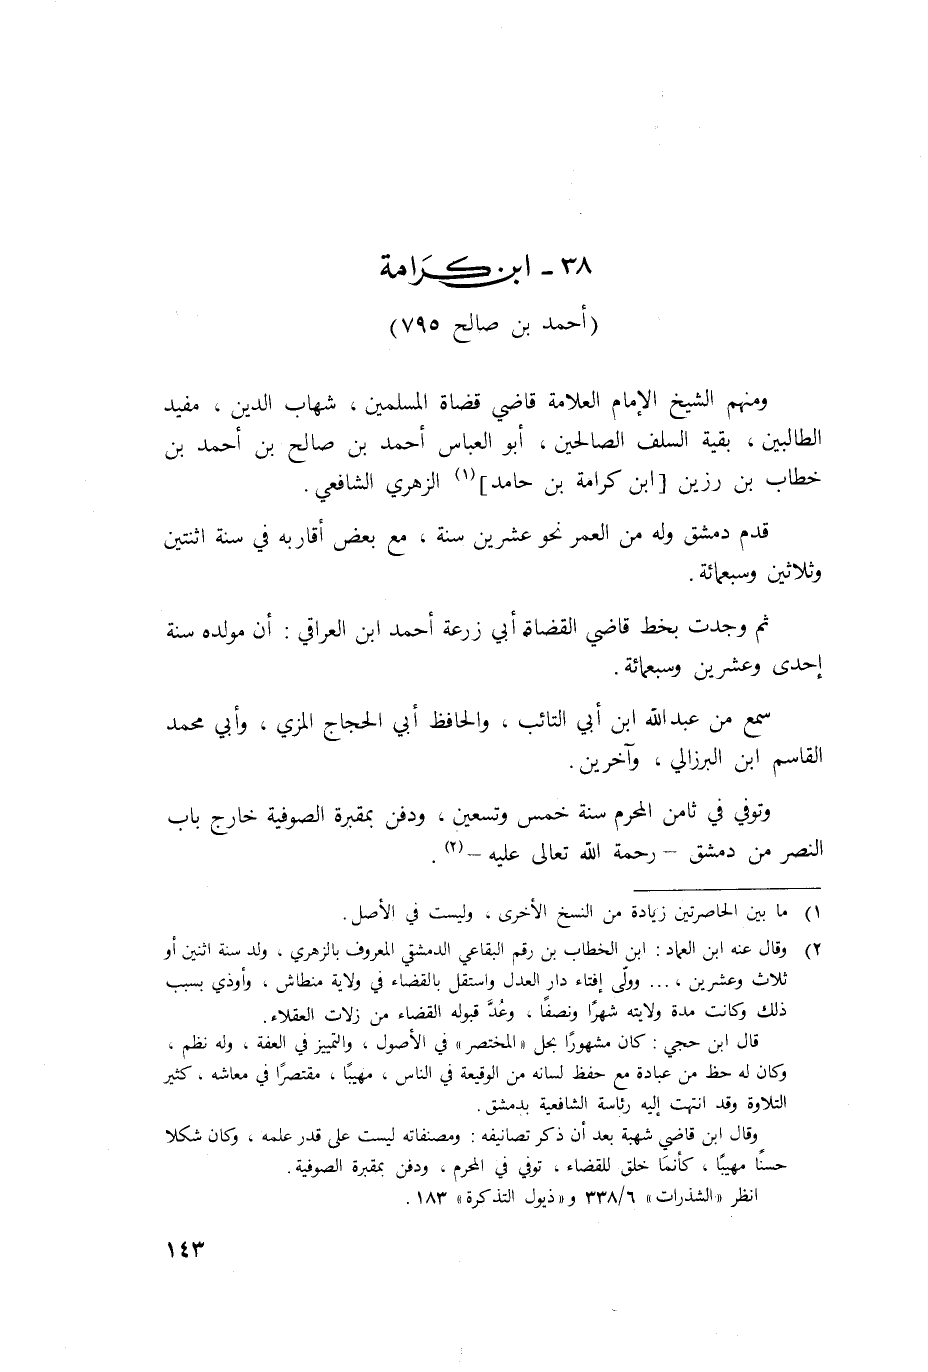 ٣٨ - ابن كَرَامة
(أحمد بن صالح ٧٩٥)
ومنهم الشيخ الإمام العلامة قاضي قضاة المسلمين ، شهاب الدين ، مفيد
الطالبين ، بقية السلف الصالحين ، أبو العباس أحمد بن صالح بن أحمد بن
خطاب بن رزين [ابن كرامة بن حامد](١) الزهري الشافعي .
قدم دمشق وله من العمر نحو عشرين سنة ، مع بعض أقاربه في سنة اثنتين
وثلاثين وسبعمائة .
ثم وجدت بخط قاضي القضاة أبي زرعة أحمد ابن العراقي : أن مولده سنة
إحدى وعشرين وسبعمائة .
سمع من عبدالله ابن أبي التائب ، والحافظ أبي الحجاج المزي ، وأبي محمد
القاسم ابن البرزالي ، وآخرين .
وتوفي في ثامن المحرم سنة خمس وتسعين ، ودفن بمقبرة الصوفية خارج باب
النصر من دمشق – رحمة الله تعالى عليه –(٢) .
١) ما بين الحاصرتين زيادة من النسخ الأخرى ، وليست في الأصل .
٢) وقال عنه ابن العماد : ابن الخطاب بن رقم البقاعي الدمشقي المعروف بالزهري ، ولد سنة اثنين أو
ثلاث وعشرين ، ... وولّى إفتاء دار العدل واستقل بالقضاء في ولاية منطاش ، وأوذي بسبب
ذلك وكانت مدة ولايته شهرًا ونصفًا ، وعُدَّ قبوله القضاء من زلات العقلاء .
قال ابن حجي : كان مشهورًا بحل «المختصر» في الأصول ، والتمييز في العفة ، وله نظم ،
وكان له حظ من عبادة مع حفظ لسانه من الوقيعة في الناس ، مهيبًا ، مقتصرًا في معاشه ، كثير
التلاوة وقد انتهت إليه رئاسة الشافعية بدمشق .
وقال ابن قاضي شهبة بعد أن ذكر تصانيفه : ومصنفاته ليست على قدر علمه ، وكان شكلا
حسنًا مهيبًا ، كأنمَا خلق للقضاء ، توفي في المحرم ، ودفن بمقبرة الصوفية .
انظر «الشذرات» ٣٣٨/٦ و«ذيول التذكرة» ١٨٣ .
١٤٣